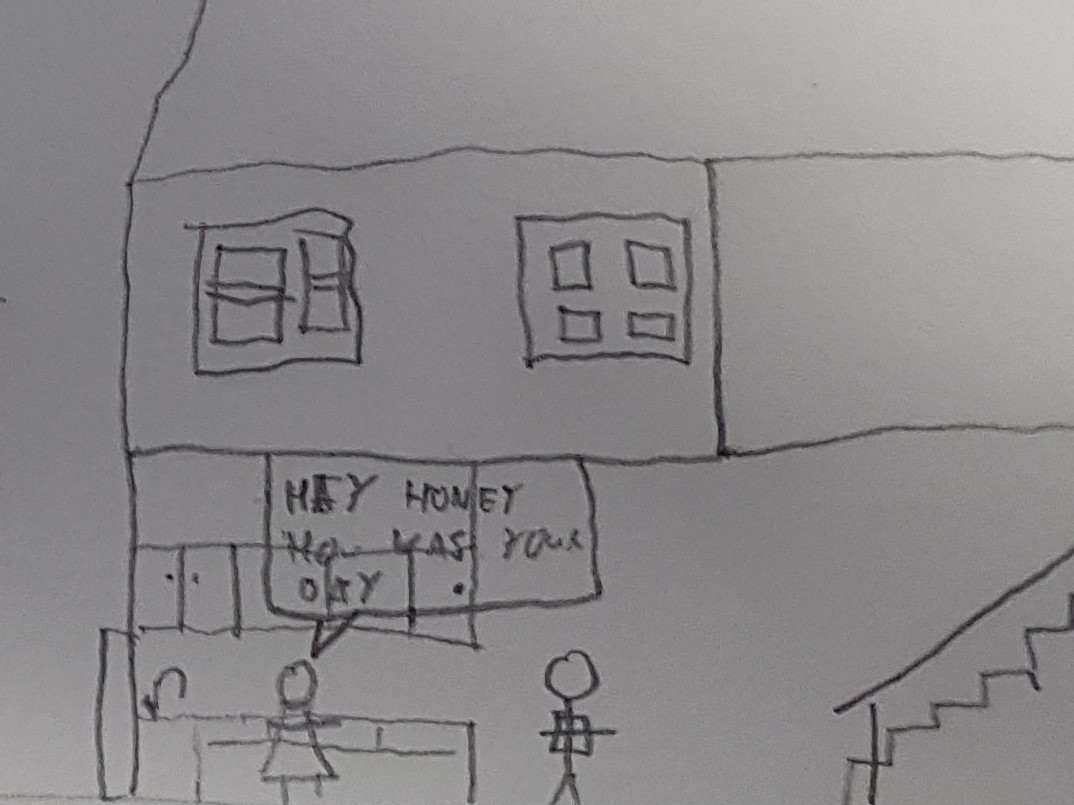 HEY HONEY
HOW WAS YOUR
DAY